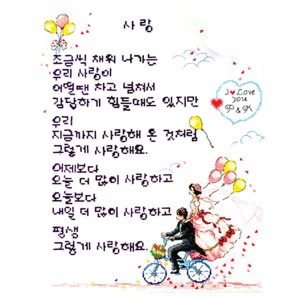 사랑
조금씩 채워 나가는
우리 사랑이
어떨땐 차고 넘쳐서
감당하기 힘들때도 있지만
우리
지금까지 사랑해 온 것처럼
그렇게 사랑해요.
어제보다
오늘 더 많이 사랑하고
오늘보다
내일 더 많이 사랑하고
평생
그렇게 사랑해요.
I ♥ Love
you
P & K